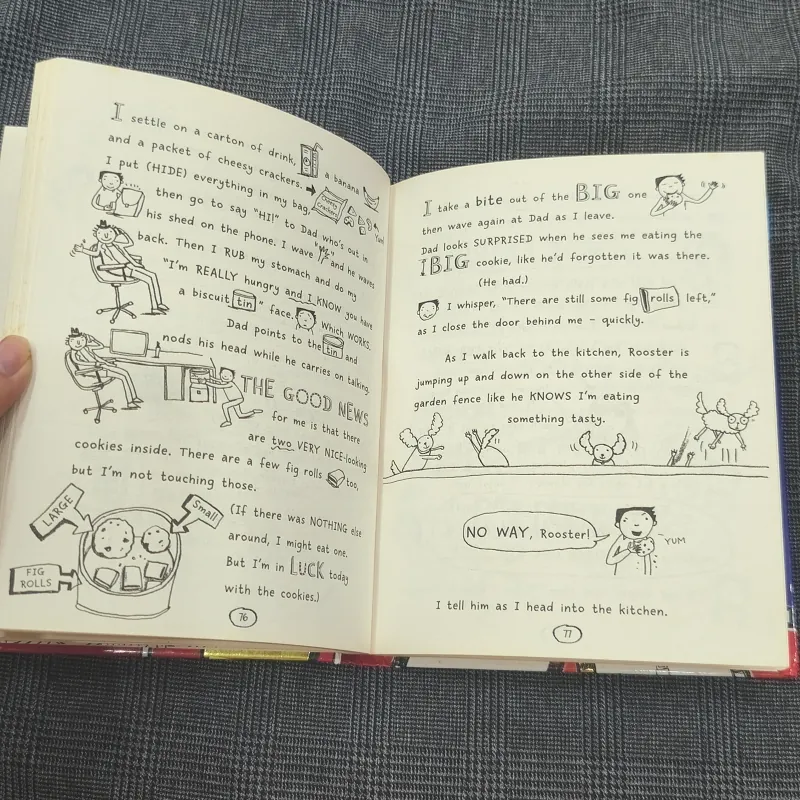 I settle on a carton of drink,
a banana
and a packet of cheesy crackers.
Cheesy Crackers
Yum!
I put (HIDE) everything in my bag,
then go to say "HI!" to Dad who's out in
his shed on the phone. I wave and he waves
back. Then I RUB my stomach and do my
"I'm REALLY hungry and I KNOW you have
a biscuit tin" face. Which WORKS.
Dad points to the tin and
nods his head while he carries on talking.
THE GOOD NEWS
for me is that there
are two VERY NICE-looking
cookies inside. There are a few fig rolls too,
but I'm not touching those.
LARGE
Small
FIG
ROLLS
(If there was NOTHING else
around, I might eat one.
But I'm in LUCK today
with the cookies.)
76
I take a bite out of the BIG one
then wave again at Dad as I leave.
Dad looks SURPRISED when he sees me eating the
BIG cookie, like he'd forgotten it was there.
(He had.)
I whisper, "There are still some fig rolls left,"
as I close the door behind me – quickly.
As I walk back to the kitchen, Rooster is
jumping up and down on the other side of the
garden fence like he KNOWS I'm eating
something tasty.
NO WAY, Rooster!
YUM
I tell him as I head into the kitchen.
77